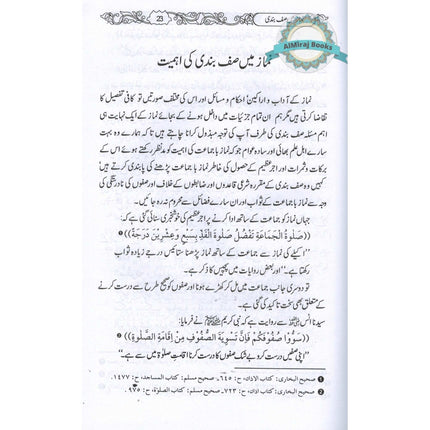 نماز میں صف بندی
23
AlMiraj Books
نماز میں صف بندی کی اہمیت
نماز کے آداب و اراکین' احکام و مسائل اور اس کی مختلف صورتیں تو کافی تفصیل کا
تقاضا کرتی ہیں مگر ہم ان تمام جزئیات میں داخل ہونے کے بجائے نماز کے ایک نہایت ہی
اہم مسئلہ صف بندی کی طرف آپ کی توجہ مبذول کرانا چاہتے ہیں تاکہ ہمارے وہ بہت
سارے اہل علم بھائی اور سادہ عوام جو کہ نماز باجماعت کی اہمیت کو مدنظر رکھتے ہوئے اس کے
برکات و ثمرات اور اجر عظیم کے حصول کی خاطر نماز باجماعت پڑھنے کی پابندی کرتے ہیں
کہیں وہ صف بندی کے مقررہ شرعی قاعدوں اور ضابطوں کے خلاف اور صفوں کی نادرستگی کی
وجہ سے نماز باجماعت کے ثواب اور ان سارے فضائل سے محروم نہ رہ جائیں۔
جہاں نماز کو جماعت کے ساتھ ادا کرنے پر اجر عظیم کی خوشخبری سنائی گئی ہے کہ:
((صَلٰوةُ الْجَمَاعَةِ تَفْضُلُ صَلٰوةَ الْفَذِّ بِسَبْعٍ وَعِشْرِيْنَ دَرَجَةً)) ❶
''اکیلے کی نماز سے جماعت کے ساتھ نماز پڑھنا ستائیس درجے زیادہ ثواب
رکھتا ہے۔'' اور بعض روایات میں پچیس کا ذکر ہے۔
تو دوسری جانب جماعت میں مل کر کھڑے ہونا اور صفوں کو صحیح طرح سے درست کرنے
کے متعلق بھی سخت تاکید کی گئی ہے۔
سیدنا انس رضی اللہ عنہ سے روایت ہے کہ نبی کریم ﷺ نے فرمایا:
((سَوُّوْا صُفُوْفَكُمْ فَاِنَّ تَسْوِيَةَ الصُّفُوْفِ مِنْ اِقَامَةِ الصَّلٰوةِ)) ❷
''اپنی صفیں درست کرو بے شک صفوں کا درست کرنا اقامتِ صلوٰۃ میں سے ہے۔''
❶ صحیح البخاری: کتاب الاذان، ح: ٦٤٥۔ صحیح مسلم: کتاب المساجد، ح: ١٤٧٧۔
❷ صحیح البخاری: کتاب الاذان، ح: ٧٢٣۔ صحیح مسلم: کتاب الصلوٰة، ح: ٩٧٥۔